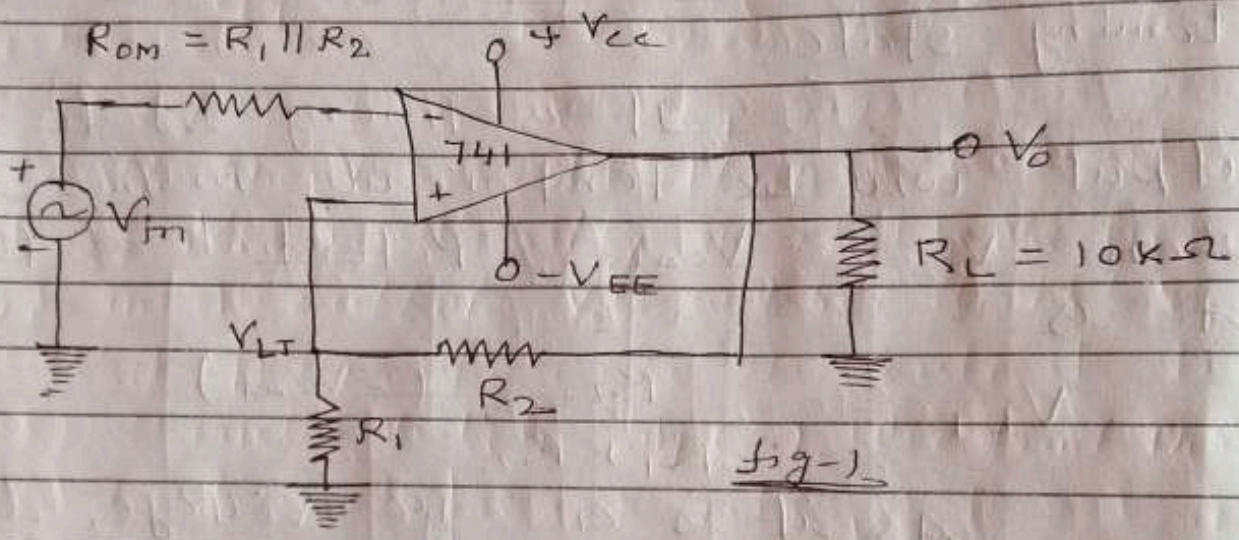 ROM = R1 || R2
+ VCC
-
741
+
+
-
Vin
VO
RL = 10KΩ
-VEE
VLT
R2
R1
fig-1